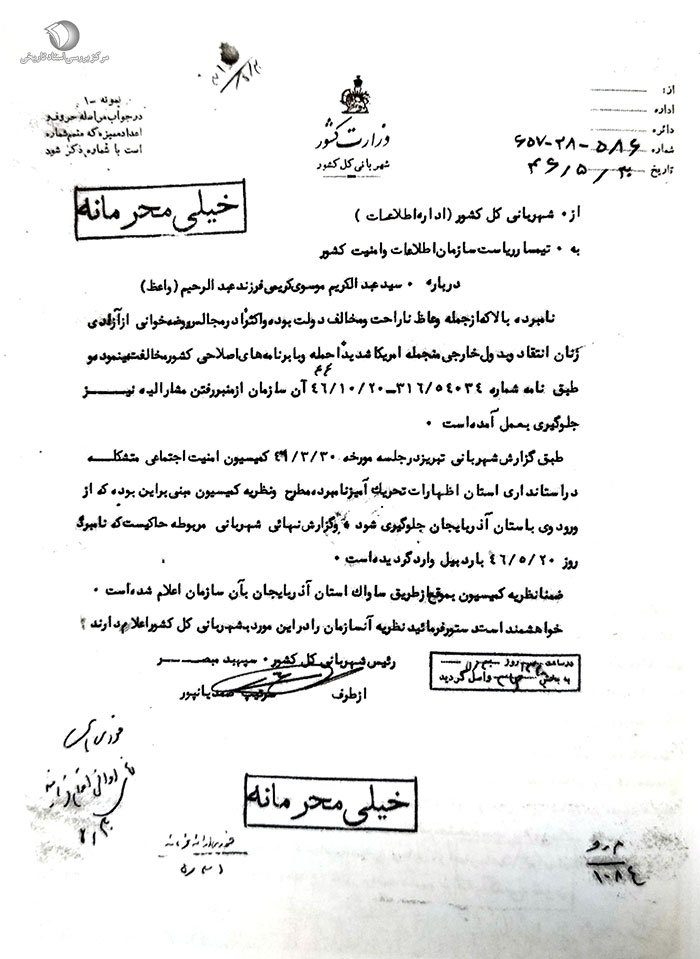 مرکز بررسی اسناد تاریخی
نمونه -۱
در جواب مراسله حروف و
اعداد ممیزه که منضم شماره
است با شماره ذکر شود
وزارت کشور
شهربانی کل کشور
از:
اداره
دائره
شماره ۵۸۶-۲۸-۶۵۷
تاریخ ۴۶/۵/۳۰
خیلی محرمانه
از ۰ شهربانی کل کشور (اداره اطلاعات)
به ۰ تیمسار ریاست سازمان اطلاعات و امنیت کشور
درباره ۰ سید عبدالکریم موسوی کریمی فرزند عبدالرحیم (واعظ)
نامبرده بالا که از جمله وعاظ ناراحت و مخالف دولت بوده و اکثرا در مجالس روضه خوانی از آزادی
زنان انتقاد و بدول خارجی منجمله امریکا شدیدا حمله و با برنامه های اصلاحی کشور مخالفت مینموده و
طبق نامه شماره ۳۱۶/۵۴۰۳۴ــ۴۶/۱۰/۲۰ آن سازمان از منبر رفتن مشارالیه نیــــز
جلوگیری بعمل آمده است ۰
طبق گزارش شهربانی تبریز در جلسه مورخه ۴۶/۳/۳۰ کمیسیون امنیت اجتماعی متشکلـــه
در استانداری استان اظهارات تحریک آمیز نامبرده مطرح و نظریه کمیسیون مبنی براین بوده که از
ورود وی باستان آذربایجان جلوگیری شود ۰ و گزارش نهائی شهربانی مربوطه حاکیست که نامبرده
روز ۴۶/۵/۲۰ باردبیل وارد گردیده است ۰
ضمنا نظریه کمیسیون بموقع از طریق ساواک استان آذربایجان بآن سازمان اعلام شده است ۰
خواهشمند است دستور فرمائید نظریه آنسازمان را در این مورد بشهربانی کل کشور اعلام دارند
رئیس شهربانی کل کشور ۰ سپهبد مبصـــــر
از طرف سرتیپ صمدیانپور
در ساعت روز
به بخش واصل گردید
خیلی محرمانه
۱۰۸۴